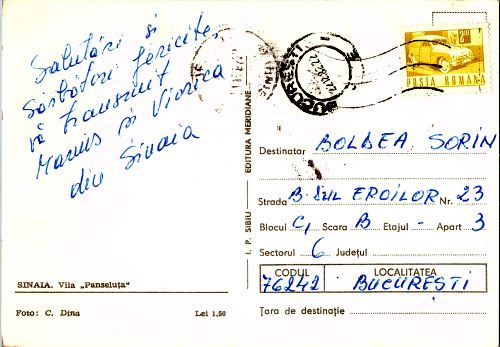 Salutări și
Sărbători fericite,
vă transmit
Marius și Viorica
din Sinaia
SINAIA. Vila „Panseluța”
Foto: C. Dina
Lei 1.50
I. P. SIBIU
EDITURA MERIDIANE
BUCUREȘTI
2 LEI
POSTA ROMANA
Destinatar BOLDEA SORIN
Strada B-DUL EROILOR Nr. 23
Blocul C1 Scara B Etajul - Apart 3
Sectorul 6 Județul
CODUL LOCALITATEA
76242 BUCUREȘTI
Țara de destinație